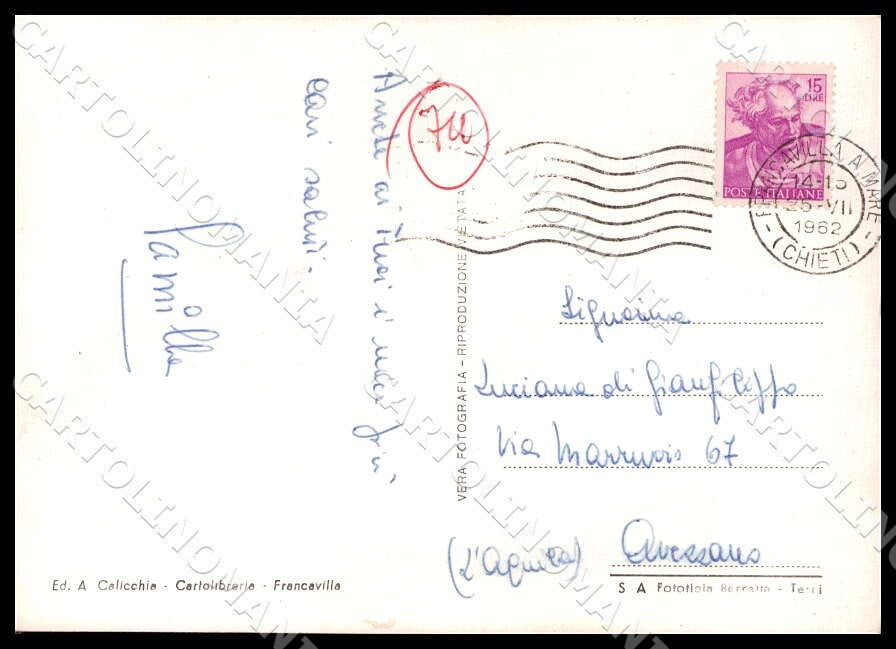 Anche ai Tuoi i miei più
cari saluti.
Camilla
15
LIRE
POSTE ITALIANE
FRANCAVILLA A MARE
14-15
25-VII
1962
(CHIETI)
VERA FOTOGRAFIA - RIPRODUZIONE VIETATA
Signorina
Luciana di Gianfilippo
Via Marruvio 67
(L'Aquila) Avezzano
Ed. A Calicchia - Cartolibreria - Francavilla
S A Fototipia Berretta - Terni
CARTOLINOMANIA